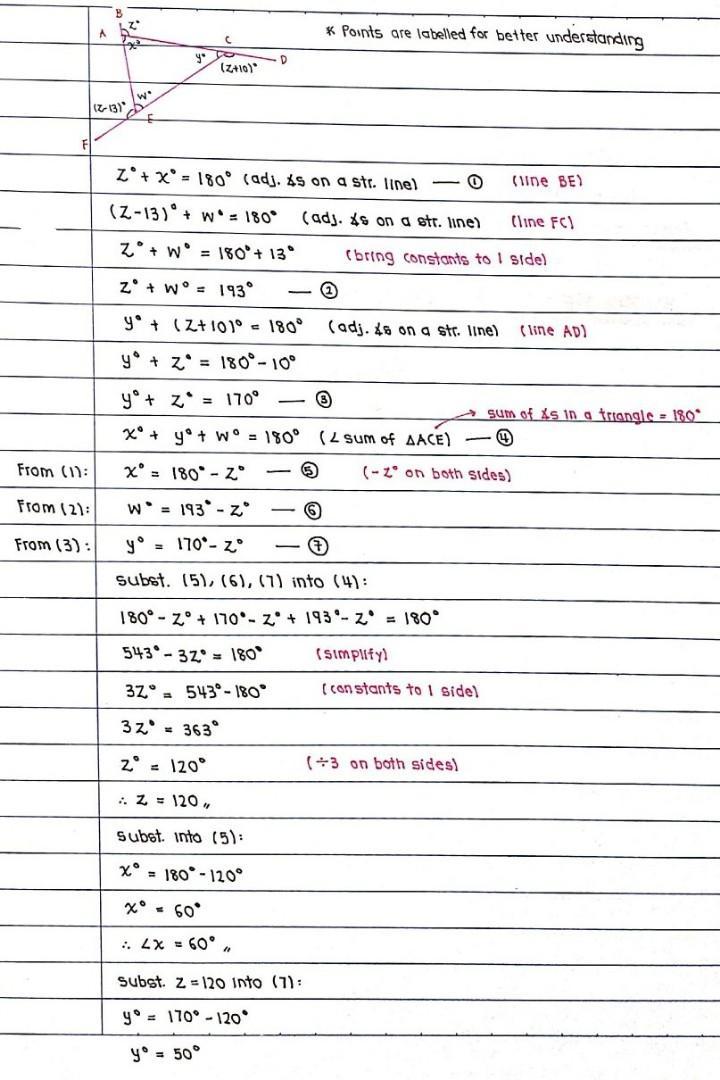 B
A z°
x°
C
* Points are labelled for better understanding
y° D
(z+10)°
w°
(z-13)°
E
F
z° + x° = 180° (adj. ∡s on a str. line) — ① (line BE)
(z-13)° + w° = 180° (adj. ∡s on a str. line) (line FC)
z° + w° = 180° + 13° (bring constants to 1 side)
z° + w° = 193° — ②
y° + (z+10)° = 180° (adj. ∡s on a str. line) (line AD)
y° + z° = 180° - 10°
y° + z° = 170° — ③
→ sum of ∡s in a triangle = 180°
x° + y° + w° = 180° (∠ sum of △ACE) — ④
From (1): x° = 180° - z° — ⑤ (-z° on both sides)
From (2): w° = 193° - z° — ⑥
From (3): y° = 170° - z° — ⑦
subst. (5), (6), (7) into (4):
180° - z° + 170° - z° + 193° - z° = 180°
543° - 3z° = 180° (simplify)
3z° = 543° - 180° (constants to 1 side)
3z° = 363°
z° = 120° (÷3 on both sides)
∴ z = 120 〃
subst. into (5):
x° = 180° - 120°
x° = 60°
∴ ∠x = 60° 〃
subst. z = 120 into (7):
y° = 170° - 120°
y° = 50°